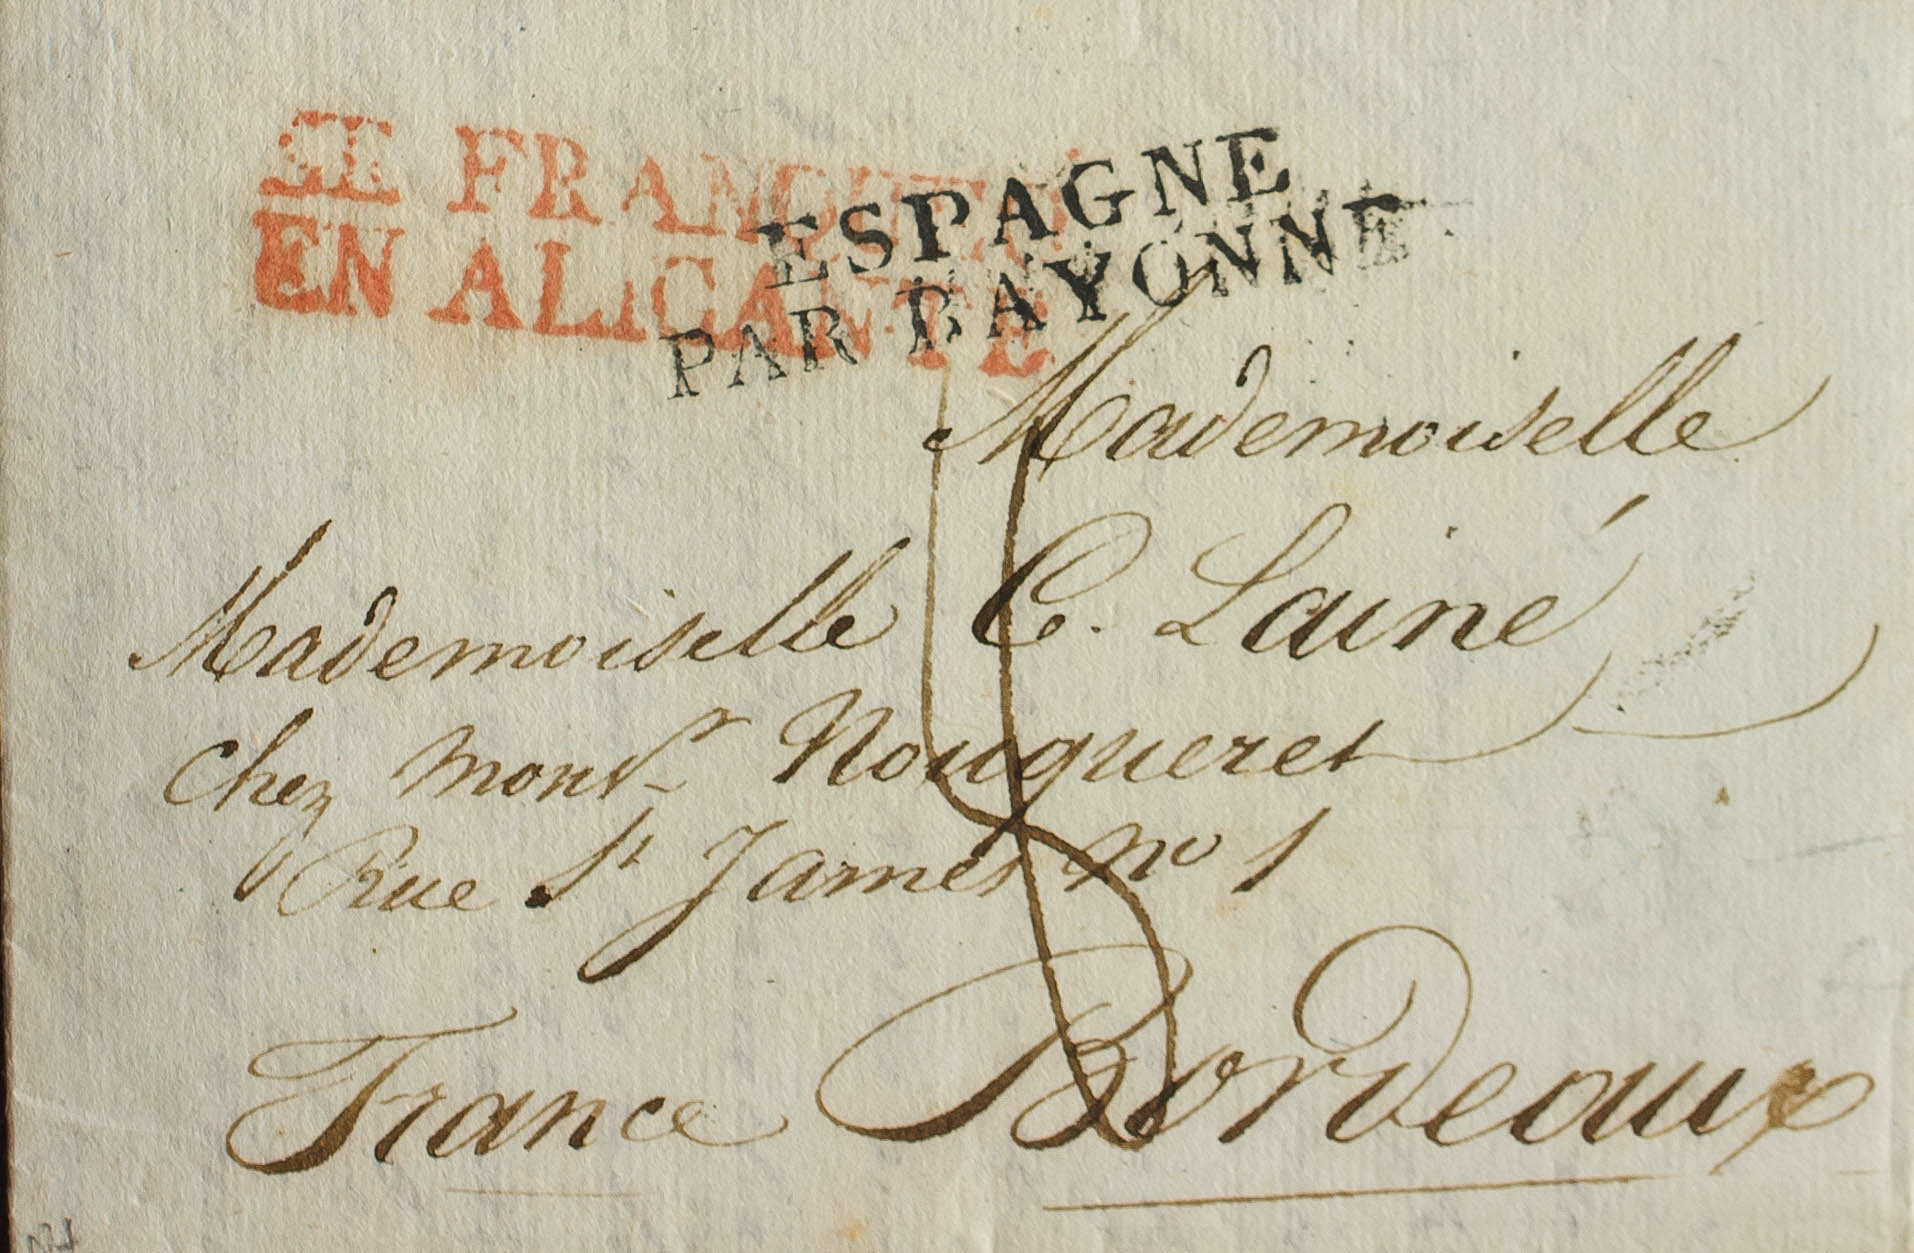 SE FRANQUEO
EN ALICANTE
ESPAGNE
PAR BAYONNE
Mademoiselle
Mademoiselle C. Lainé
chez Monsr Nougueret
Rue St James no 1
France Bordeaux